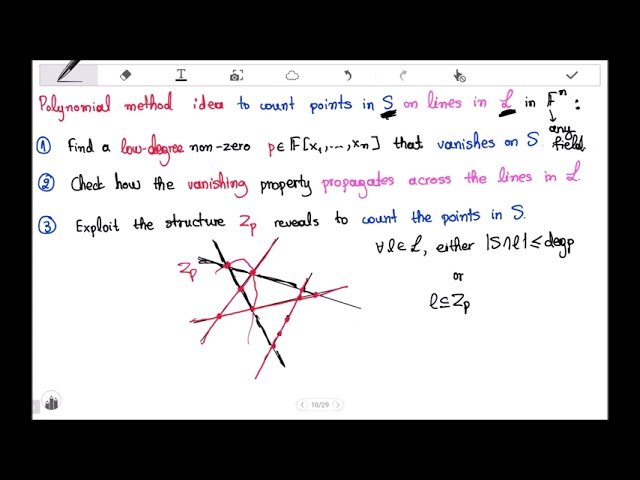 Polynomial method idea to count points in S on lines in L in Fⁿ :
any field.
① Find a low-degree non-zero p∈F[x₁,...,xₙ] that vanishes on S
② Check how the vanishing property propagates across the lines in L
③ Exploit the structure Zₚ reveals to count the points in S.
∀ℓ∈L, either |S∩ℓ|≤deg p
or
ℓ⊆Zₚ
Zₚ
10/29